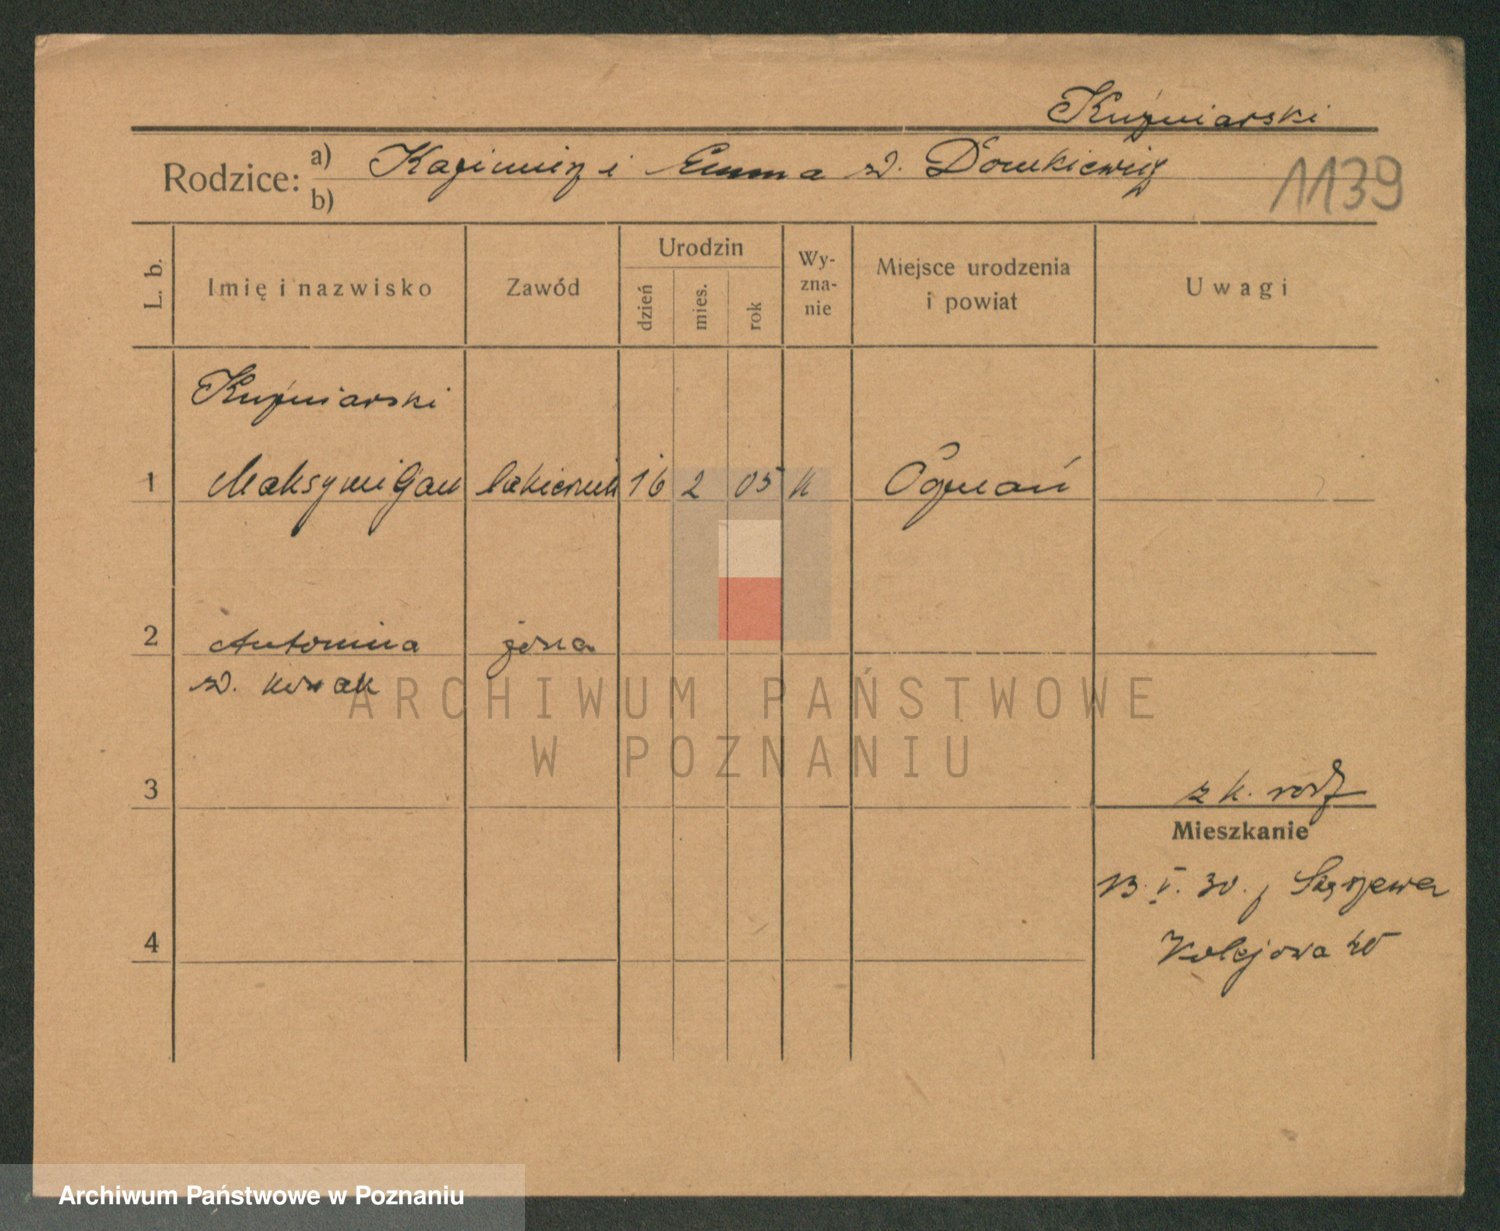 Kuźniarski
Rodzice: a) Kazimierz i Emma z d. Domkiewicz
b)
1139
L. b. Imię i nazwisko Zawód Urodzin dzień mies. rok Wyznanie Miejsce urodzenia i powiat Uwagi
Kuźniarski
1 Maksymiljan lakiernik 16 2 05 k Poznań
2 Antonina żona
z d. Nowak
3 z k. rodz
Mieszkanie
13. V. 30.
4 Kolejowa
ARCHIWUM PAŃSTWOWE
W POZNANIU
Archiwum Państwowe w Poznaniu